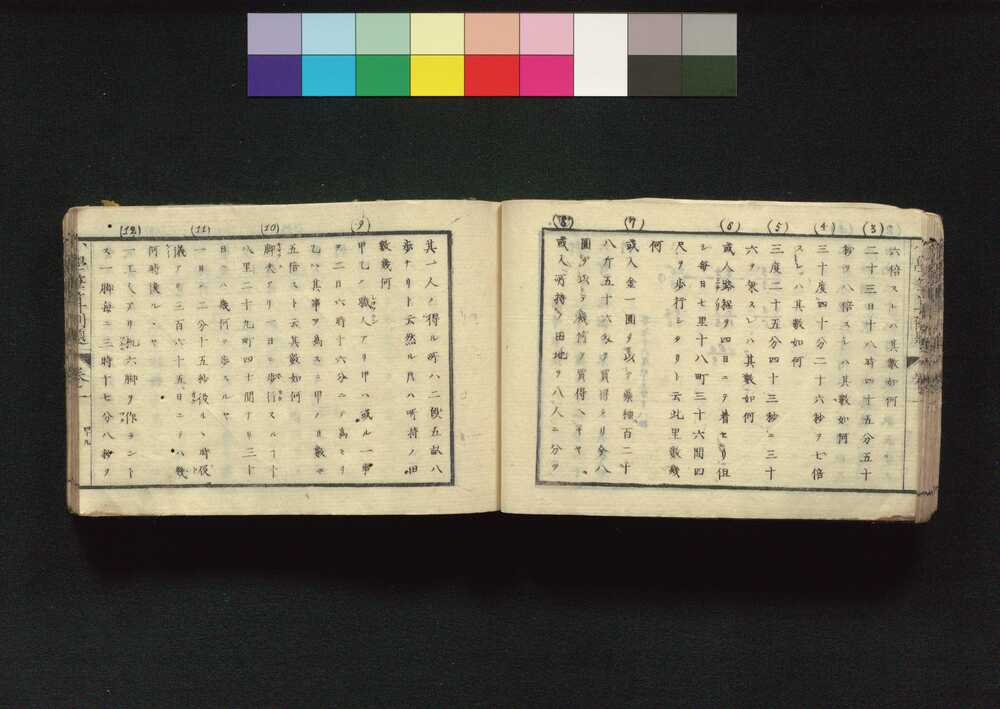 六倍スレハ其數如何
(3)
二十三日十八時四十五分五十
秒ヲ八倍スレハ其數如何
(4)
三十度四十分二十六秒ヲ七倍
スレハ其數如何
(5)
三度二十五分四十三秒ニ三十
六ヲ乘スレハ其數如何
(6)
或人路程ヲ四日ニテ着セリ但
シ每日七里十八町三十六間四
尺ヲ步行シタリト云此里數幾
何
(7)
或人金一圓ヲ以テ 百二十
八斤五十六 ヲ買得タリ今八
圓ヲ以テ幾何ヲ買得ヘキヤ
(8)
或人所持ノ田地ヲ八人ニ分ツ
其一人ノ得ル所ハ二段五畝八
步ナリト云然ル片ハ所持ノ田
數幾何
(9)
甲乙ノ職人アリ甲ハ或ル一事
ヲ二日六時十六分ニテ爲セリ
乙ハ其事ヲ爲スニ甲ノ日數ノ
五倍スト云其數如何
(10)
脚夫アリ一日ニ步行スルヿ十
八里二十九町四十間ナリ三十
日ニハ幾何ヲ步スルヤ
(11)
一日ニ二分十五秒後ルヽ時辰
儀アリ三百六十五日ニテハ幾
何時後ルヽヤ
(12)
一工人アリ机六脚ヲ作ラント
ス一脚每ニ三時十七分八秒ヲ